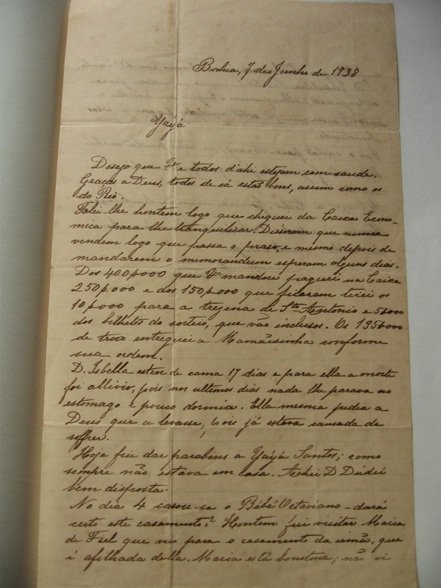 Bahia, 7 de Junho de 1938
Yayá
Desejo que Vce e todos d'ahi estejam com saude.
Graças a Deus, todos de cá estão bons, assim como os
do Rio.
Falei-lhe hontem logo que cheguei da Caixa Econo-
mica para lhe tranquilisar. Disseram que nunca
vendem logo que passa o praso, e mesmo depois de
mandarem o memorandum esperam alguns dias.
Dos 400$000 que Vce mandou paguei na Caixa
250$000 e dos 150$000 que ficaram tirei os
10$000 para a trezena de Sto Antonio e 5$000
dos bilhetes do sorteio, que vão inclusos. Os 135$000
de troco entreguei a Mamãesinha conforme
sua ordem.
D. Isbella esteve de cama 17 dias e para ella a morte
foi allivio, pois nos ultimos dias nada lhe parava no
estomago e pouco dormia. Ella mesma pedia a
Deus que a levasse, pois já estava cansada de
soffrer.
Hoje fui dar parabens a Yayá Santos; como
sempre não estava em casa. Achei D. Dudú
bem disposta.
No dia 4 casou-se o Bébé Octaviano - dará
certo este casamento? Hontem fui visitar Maria
de Fiel que veio para o casamento da irmã, que
é afilhada della. Maria está bonitona; não vi